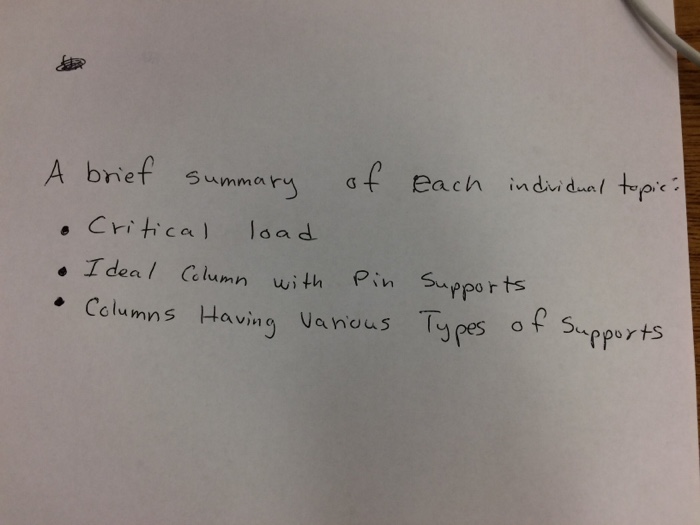 A brief summary of each individual topic:
• Critical load
• Ideal Column with Pin Supports
• Columns Having Various Types of Supports